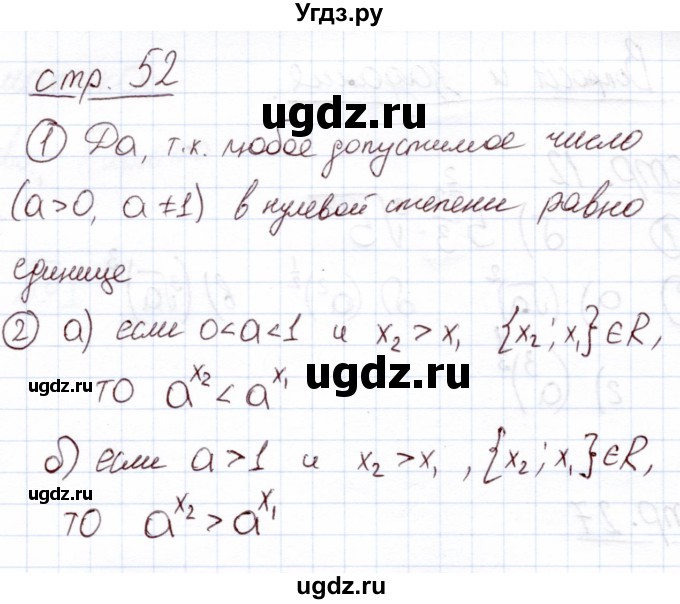 Угдз.ру
стр. 52
ugdz.ru
① Да, т.к. любое допустимое число
(a>0, a≠1) в нулевой степени равно
единице
② а) если 0<a<1 и x₂>x₁ {x₂; x₁}∈R,
ugdz.ru
то a^x₂ < a^x₁
ugdz.ru
б) если a>1 и x₂>x₁, {x₂; x₁}∈R,
ugdz.ru
то a^x₂ > a^x₁
ugdz.ru
ugdz.ru